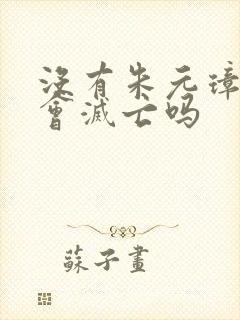 沒有朱元璋
會滅亡吗
蘇子畫